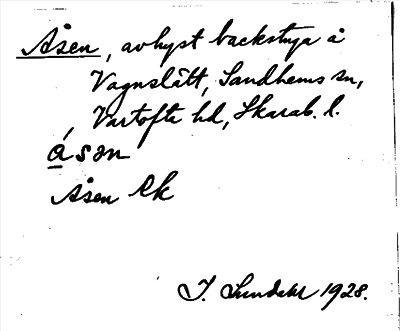 Åsen, avhyst backstuga å
Vagnslätt, Sandhems sn,
Vartofta hd, Skarab. l.
åsən
Åsen Ek
J. 1928.